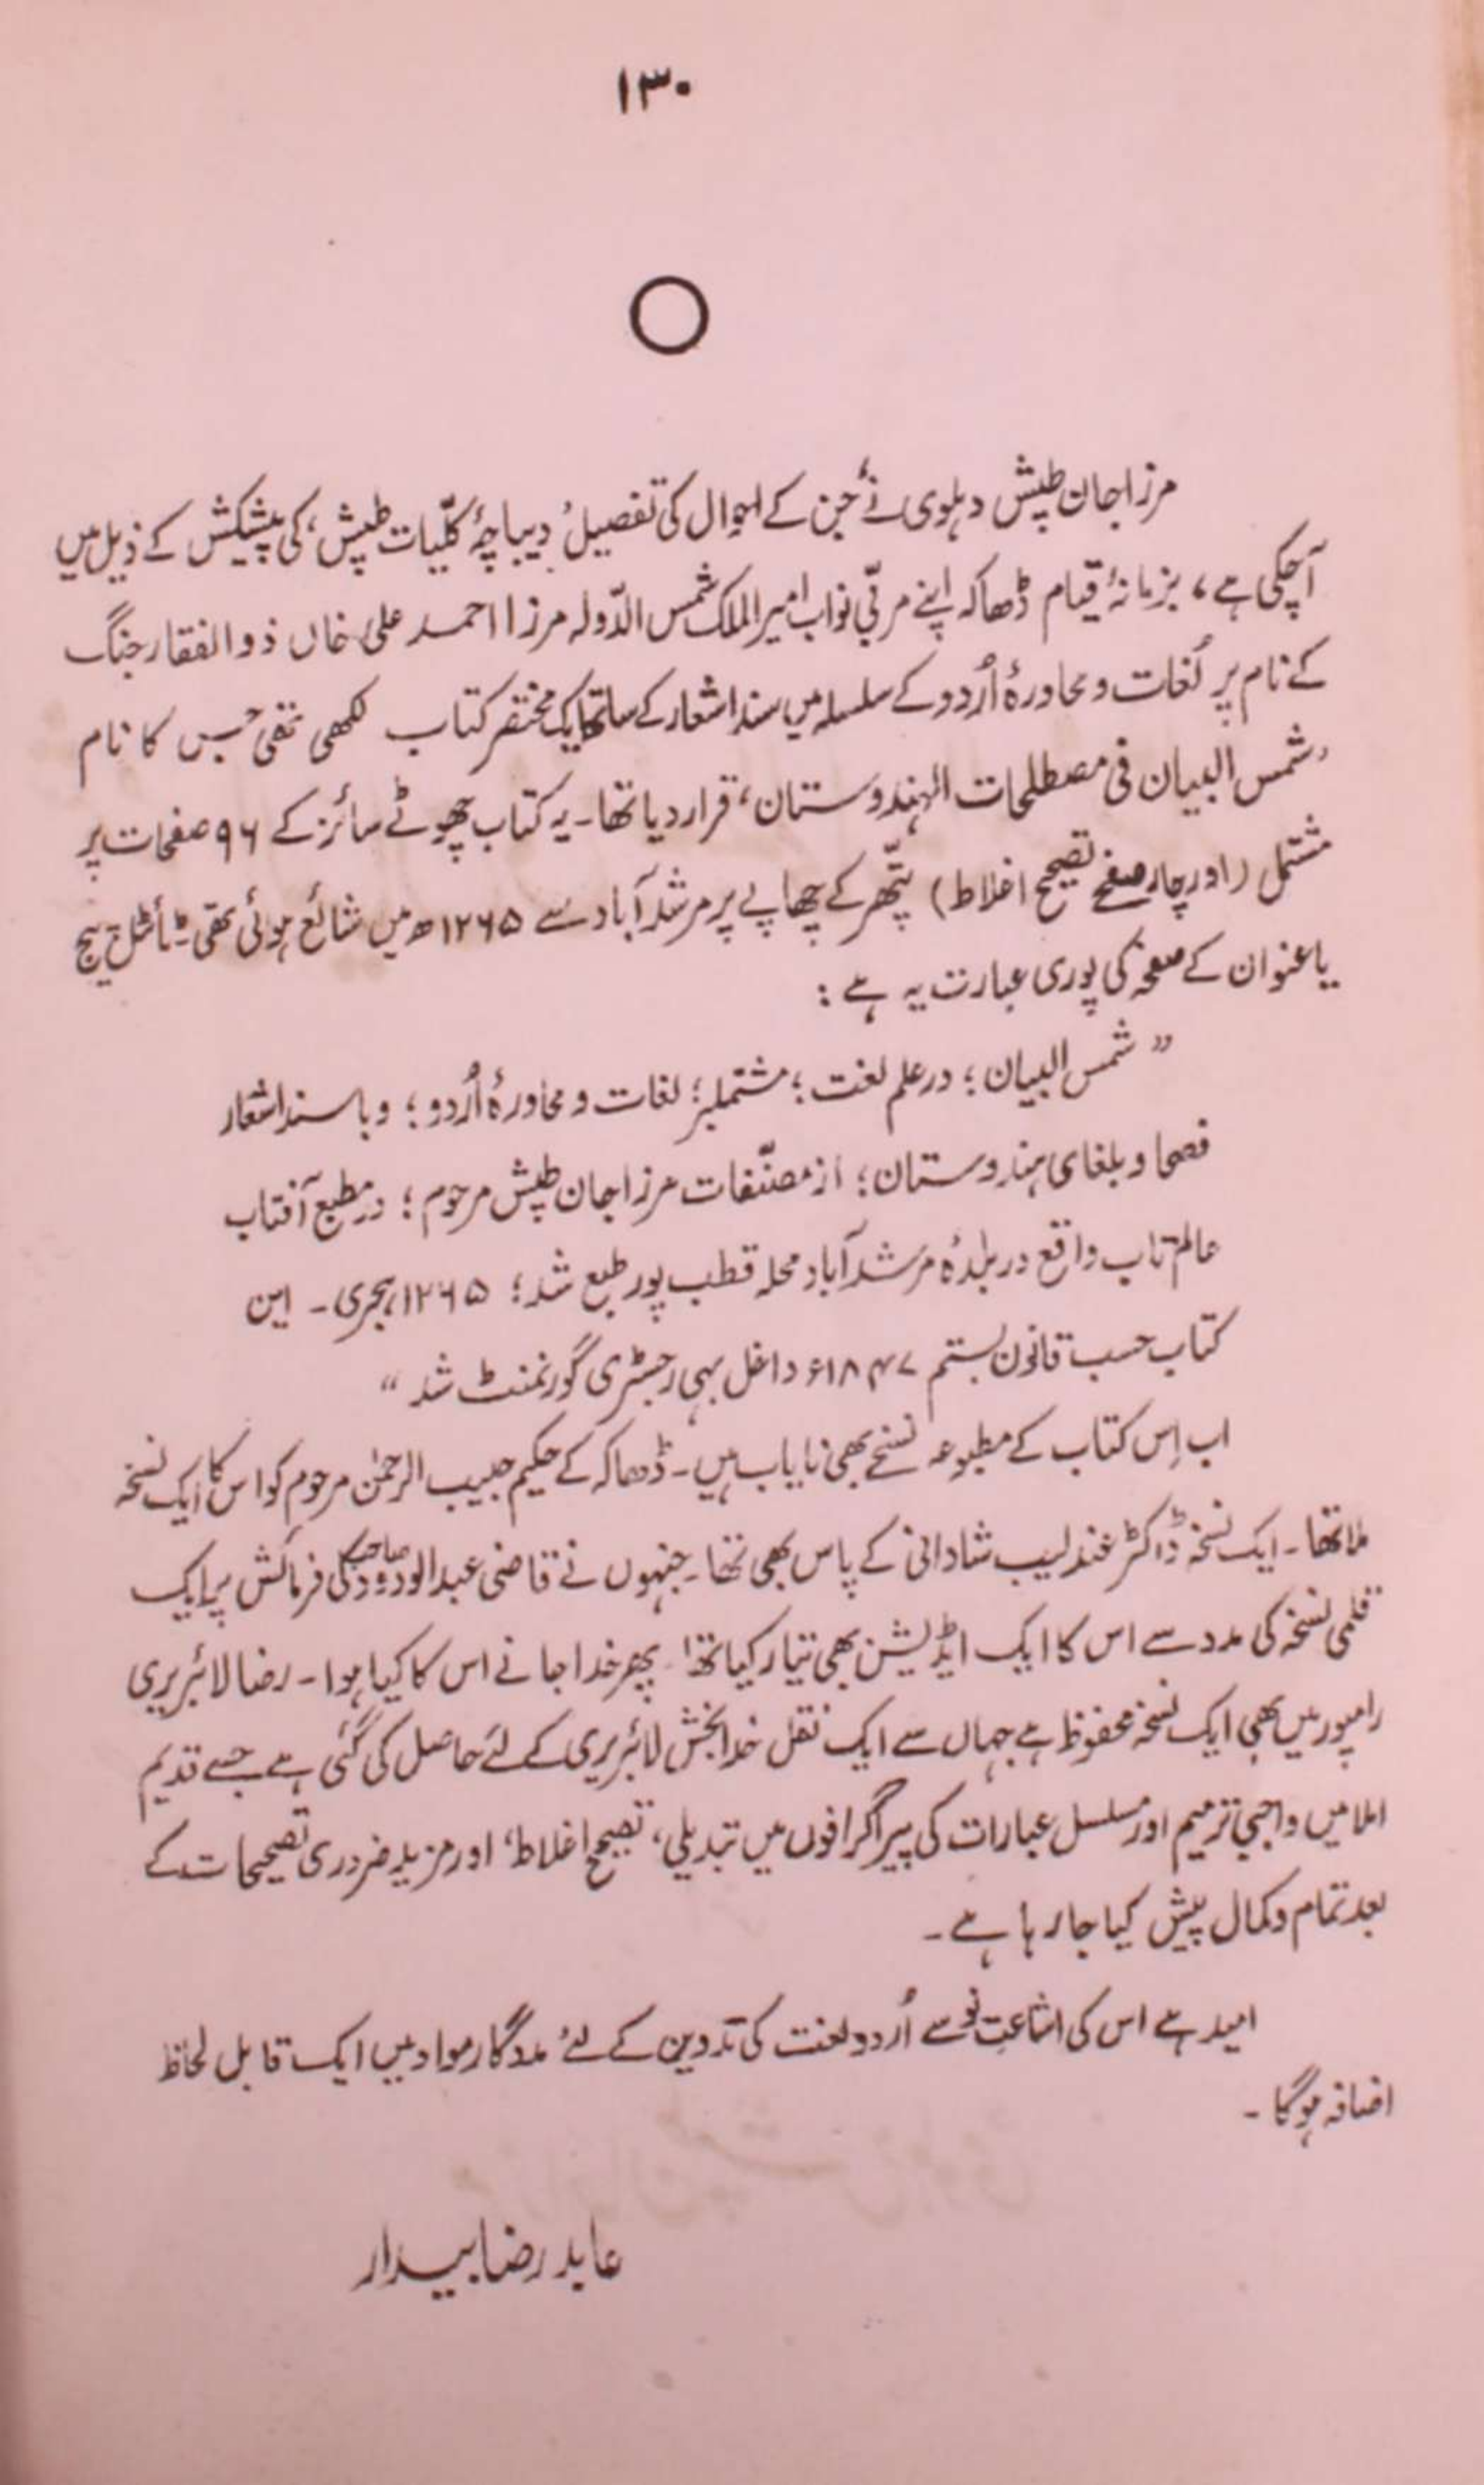 ۱۳۰
مرزا جان طپش دہلوی نے، جن کے احوال کی تفصیل ’دیباچۂ کلّیات طپش‘ کی پیشکش کے ذیل میں
آچکی ہے، بزمانۂ قیام ڈھاکہ اپنے مربّی نواب امیر الملک شمس الدّولہ مرزا احمد علی خاں ذوالفقار جنگ
کے نام پر لُغات و محاورۂ اُردو کے سلسلہ میں سند اشعار کے ساتھ ایک مختصر کتاب لکھی تھی جس کا نام
’شمس البیان فی مصطلحات الہندوستان‘ قرار دیا تھا۔ یہ کتاب چھوٹے سائز کے ۹۶ صفحات پر
مشتمل (اور چار صفحے تصحیح اغلاط) پتّھر کے چھاپے پر مرشدآباد سے ۱۲۶۵ھ میں شائع ہوئی تھی۔ ٹائٹل پیج
یا عنوان کے صفحہ کی پوری عبارت یہ ہے:
” شمس البیان؛ در علم لغت؛ مشتملبر؛ لغات و محاورۂ اُردو؛ و با سند اشعار
فصحا و بلغای ہندوستان؛ از مصنّفات مرزا جان طپش مرحوم؛ در مطبع آفتاب
عالم تاب واقع در بلدۂ مرشدآباد محلہ قطب پور طبع شد؛ ۱۲۶۵ ہجری۔ این
کتاب حسب قانون بستم ۱۸۴۷ء داخل بہی رجسٹری گورنمنٹ شد “
اب اِس کتاب کے مطبوعہ نسخے بھی نایاب ہیں۔ ڈھاکہ کے حکیم حبیب الرحمٰن مرحوم کو اس کا ایک نسخہ
ملا تھا۔ ایک نسخہ ڈاکٹر عندلیب شادانی کے پاس بھی تھا۔ جنہوں نے قاضی عبدالودود صاحب کی فرمائش پر ایک
قلمی نسخہ کی مدد سے اس کا ایک ایڈیشن بھی تیار کیا تھا۔ پھر خدا جانے اس کا کیا ہوا۔ رضا لائبریری
رامپور میں بھی ایک نسخہ محفوظ ہے جہاں سے ایک نقل خدا بخش لائبریری کے لئے حاصل کی گئی ہے جسے قدیم
املا میں واجبی ترمیم اور مسلسل عبارات کی پیراگرافوں میں تبدیلی، ’تصیح اغلاط‘، اور مزید ضروری تصحیحات کے
بعد تمام و کمال پیش کیا جا رہا ہے۔
امید ہے اس کی اشاعتِ نو سے اُردو لغت کی تدوین کے لئے مددگار مواد میں ایک قابل لحاظ
اضافہ ہوگا۔
عابد رضا بیدار